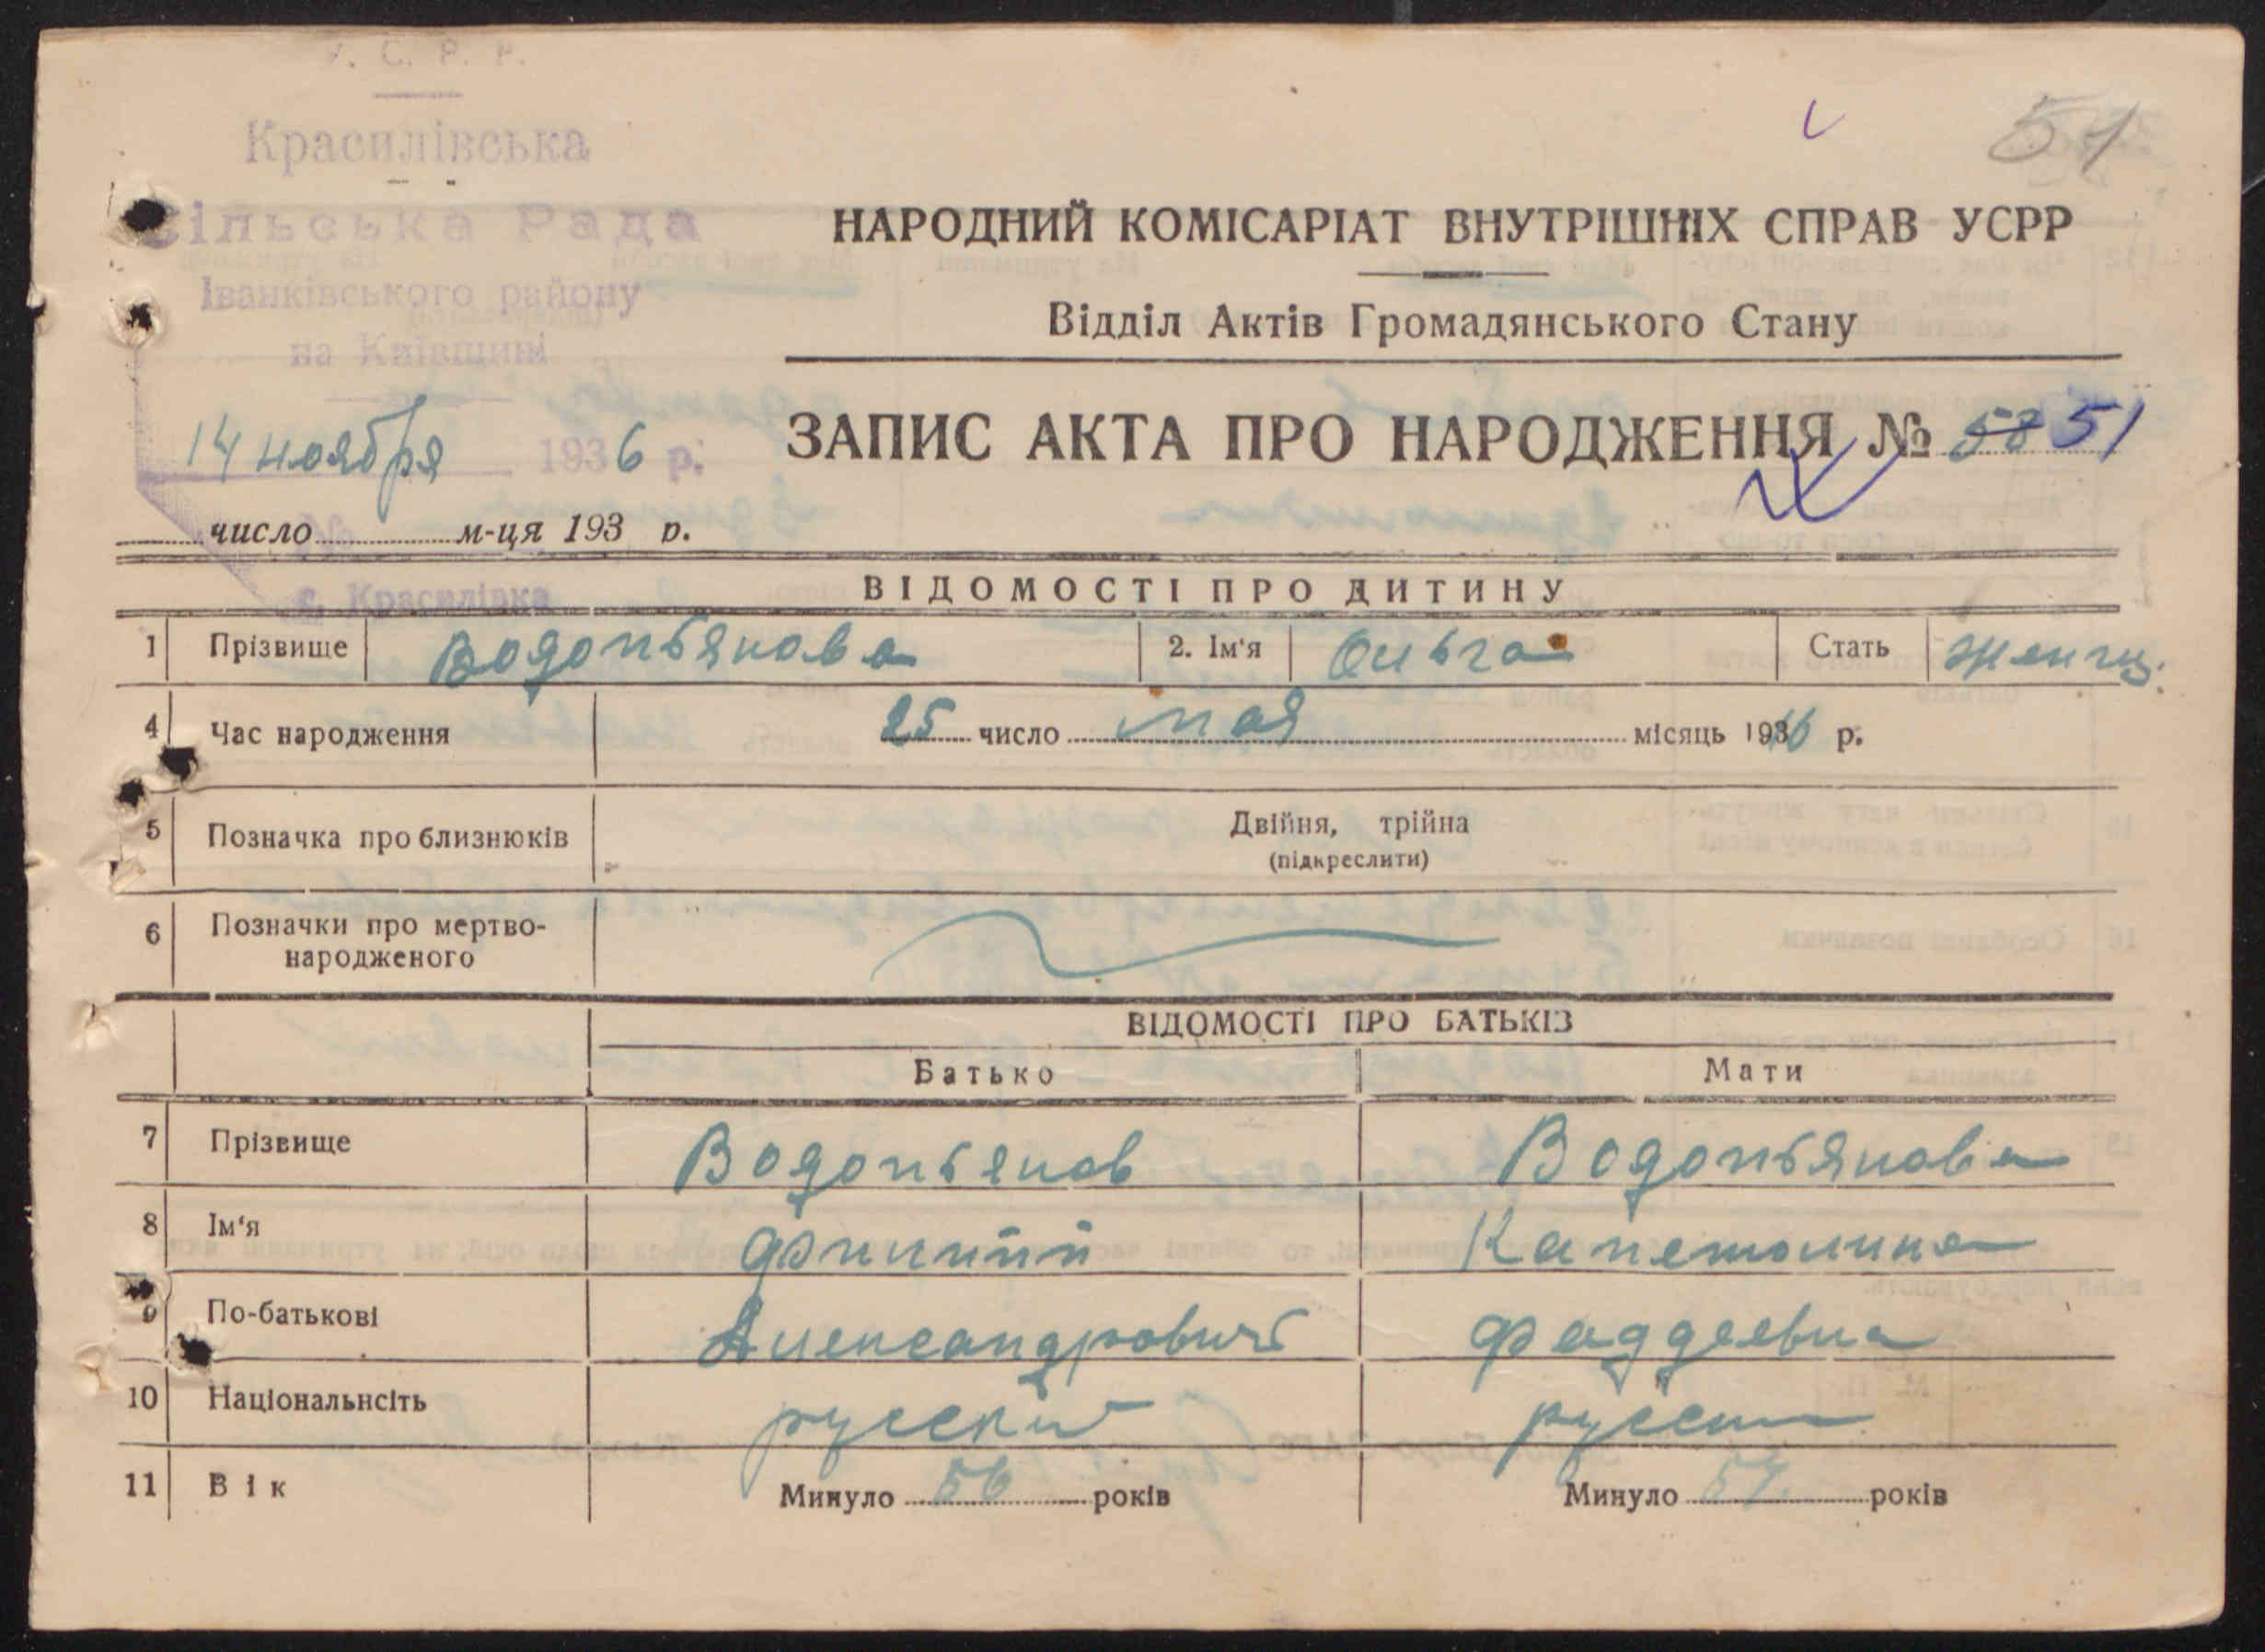 У. С. Р. Р.
Красилівська
Сільська Рада
Іванківського району
на Київщині
14 ноября 1936 р.
с. Красилівка
51
НАРОДНИЙ КОМІСАРІАТ ВНУТРІШНІХ СПРАВ УСРР
Відділ Актів Громадянського Стану
ЗАПИС АКТА ПРО НАРОДЖЕННЯ № 58 51
число м-ця 193 р.
ВІДОМОСТІ ПРО ДИТИНУ
1 Прізвище Водопьянова 2. Ім'я Ольга Стать женщ.
4 Час народження 25 число мая місяць 1916 р.
5 Позначка про близнюків Двійня, трійна
(підкреслити)
6 Позначки про мертво-
народженого
ВІДОМОСТІ ПРО БАТЬКІВ
Батько Мати
7 Прізвище Водопьянов Водопьянова
8 Ім'я Филипп Капетолина
9 По-батькові Александрович Фаддеевна
10 Національнсіть русский русская
11 Вік Минуло 56 років Минуло 57 років